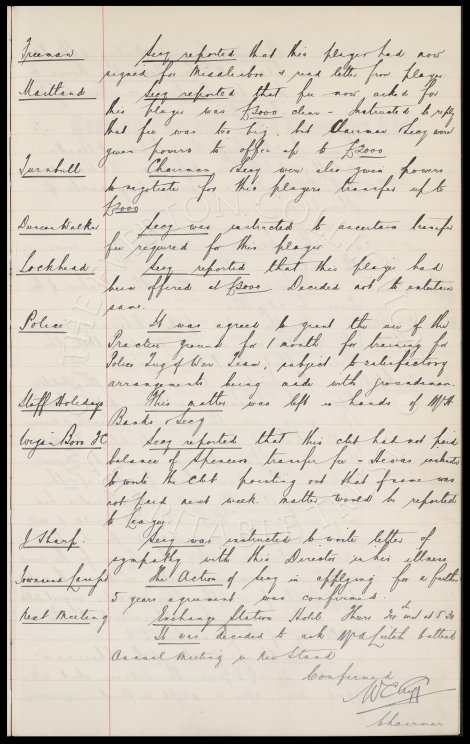 Freeman Secy reported that this player had now
signed for Middlesboro & read letter from player
Maitland Secy reported that fee now asked for
this player was £3000 clear - Instructed to reply
that fee was too big, but Chairman Secy were
given powers to offer up to £2000
Turnbull Chairman Secy were also given powers
to negotiate for this players transfer up to
£3000
Duncan Walker Secy was instructed to ascertain transfer
fee required for this player
Lockhead Secy reported that this player had
been offered at £3000. Decided not to entertain
same.
Police It was agreed to grant the use of the
Practice ground for 1 month for training for
Police Tug of War Team, subject to satisfactory
arrangements being made with groundsman.
Staff Holidays This matter was left in hands of Mr H
Banks & Secy
Wigan Boro FC Secy reported that this club had not paid
balance of Spencers transfer fee - It was instructed
to write the Club pointing out that if same was
not paid next week matter would be reported
to League.
J Sharp. Secy was instructed to write letter of
sympathy with this Director in his illness
The Action of Secy in applying for a further
5 years agreement was confirmed.
Next Meeting Exchange Station Hotel Thurs at 5.30
It was decided to ask to attend
Annual Meeting in New Stand
Confirmed
W C Cuff
Chairman
THE EVERTON COLLECTION CHARITABLE TRUST